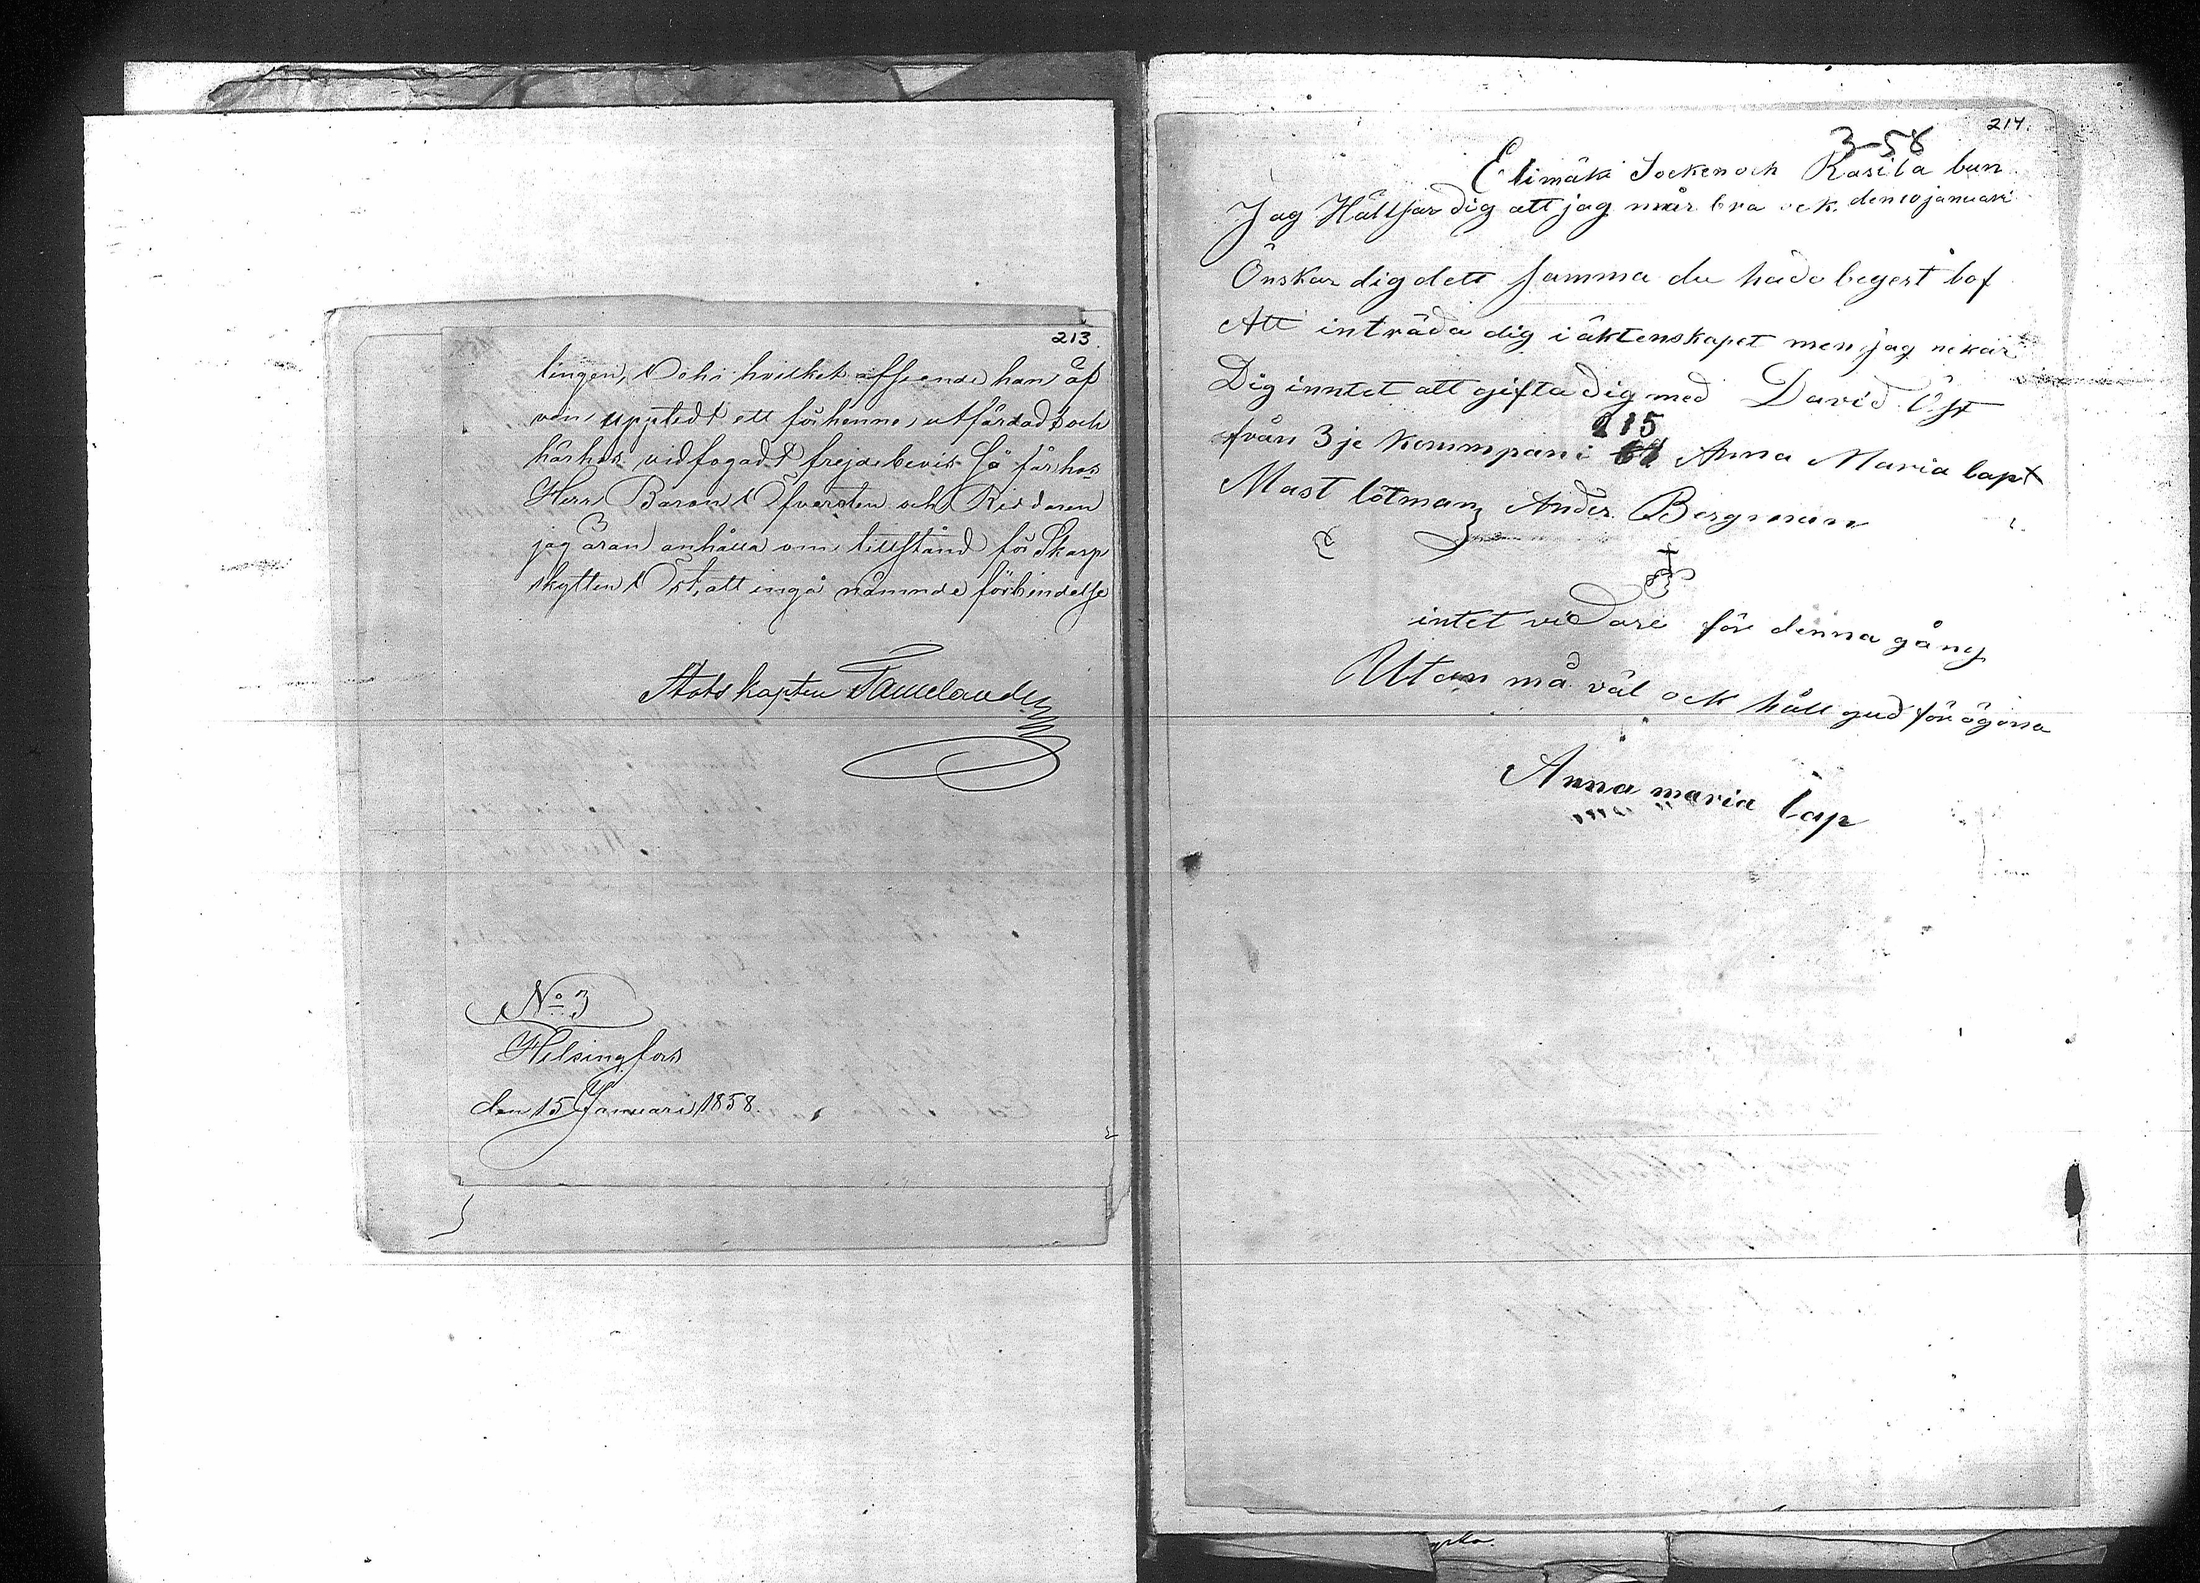 213.
lingen, och i hvilket afseende han äf
ven uppstedt ett för henne utfärdadt och
härhos vidfogadt frejdebevis Så får hos
Herr Baron Öfversten och Riddaren
jag äran anhålla om tillstånd för Skarp
skytten Öst, att ingå nämnde förbindelse
Stabskapten
No 3
Helsingfors
den 15 Januari 1858.
214.
3-58
Elimäki Socken och Rasila bun
den 10 januari
Jag Hällsar dig att jag mår bra ock
Önskar dig dett samma du hade begert bof
Att inträda dig i äktenskapet men jag nekar
Dig inntet att gifta dig med David Öst
från 3je kommpani 215 Anna Maria lapt
Mast lötman Ander Bergman
intet vidare för denna gång
Utan må väl ock håll gud för ögona
Anna maria lap